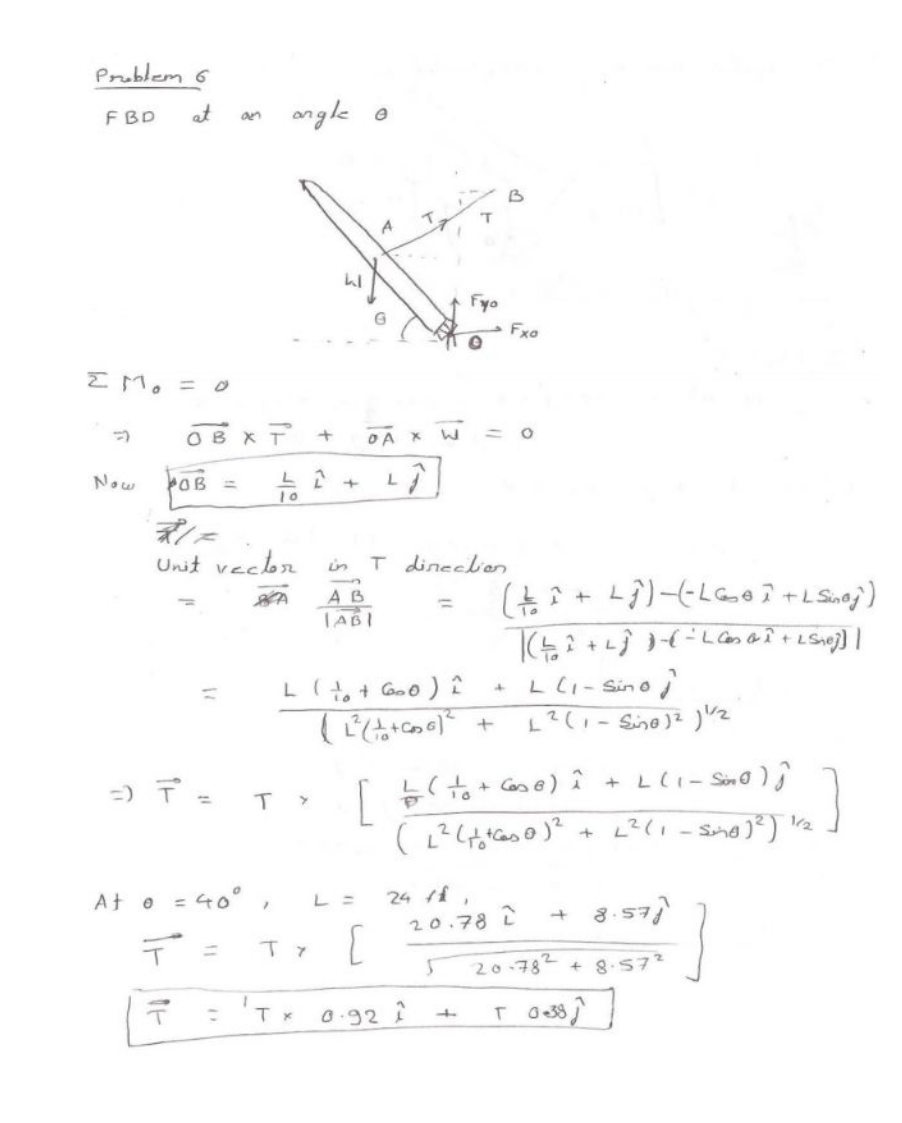 Problem 6
FBD at an angle θ
B
A T T
W
θ Fyo
Fxo
O
Σ M₀ = 0
⇒ OB⃗ × T⃗ + OA⃗ × W⃗ = 0
Now OB⃗ = L/10 î + L ĵ
Unit vector in T direction
= AB⃗/|AB⃗| = ((L/10 î + L ĵ) - (-L Cos θ î + L Sin θ ĵ)) / |(L/10 î + L ĵ) - (-L Cos θ î + L Sin θ ĵ)|
= (L (1/10 + Cos θ) î + L (1 - Sin θ ĵ) / (L²(1/10 + Cos θ)² + L²(1 - Sin θ)²)^1/2
⇒ T⃗ = T × [ (L (1/10 + Cos θ) î + L (1 - Sin θ) ĵ) / (L²(1/10 + Cos θ)² + L²(1 - Sin θ)²)^1/2 ]
At θ = 40°, L = 24 ft,
T⃗ = T × [ (20.78 î + 8.57 ĵ) / √(20.78² + 8.57²) ]
T⃗ = T × 0.92 î + T 0.38 ĵ